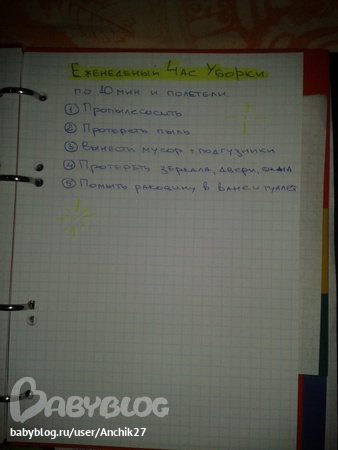 Еженедельный Час Уборки.
по 10 мин и полетели.
① Пропылесосить
② Протереть пыль
③ Вынести мусор + подгузники
④ Протереть зеркала, двери, окна
⑤ Помыть раковину в ванной туалет
BABYBLOG
babyblog.ru/user/Anchik27